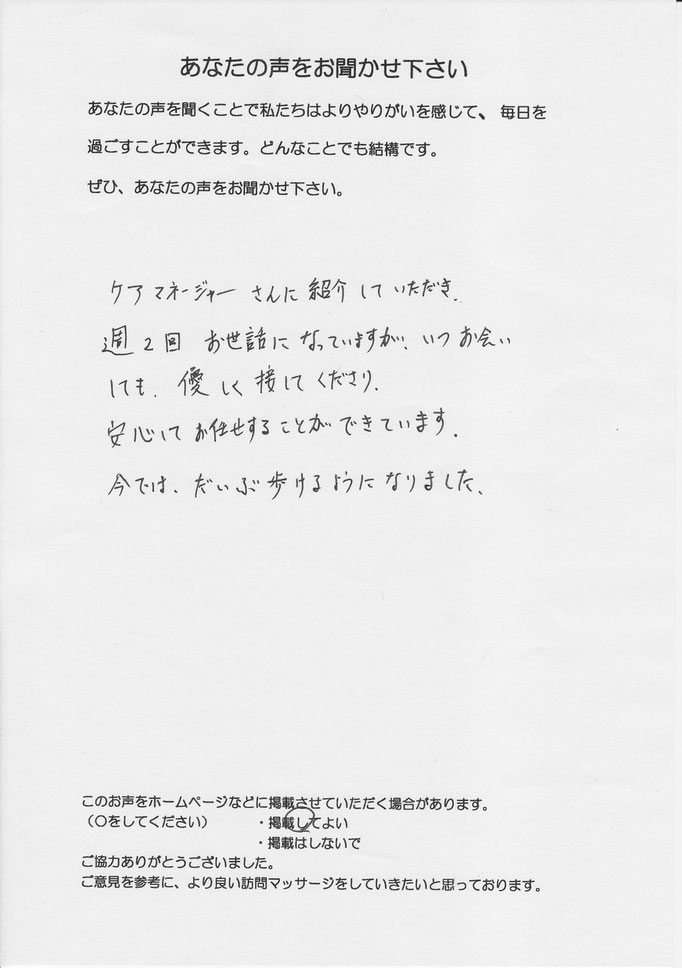 あなたの声をお聞かせ下さい
あなたの声を聞くことで私たちはよりやりがいを感じて、毎日を
過ごすことができます。どんなことでも結構です。
ぜひ、あなたの声をお聞かせ下さい。
ケアマネージャーさんに紹介していただき、
週2回 お世話になっていますが、いつお会い
しても、優しく接してくださり、
安心してお任せすることができています。
今では、だいぶ歩けるようになりました。
このお声をホームページなどに掲載させていただく場合があります。
（〇をしてください） ・掲載してよい
・掲載はしないで
ご協力ありがとうございました。
ご意見を参考に、より良い訪問マッサージをしていきたいと思っております。